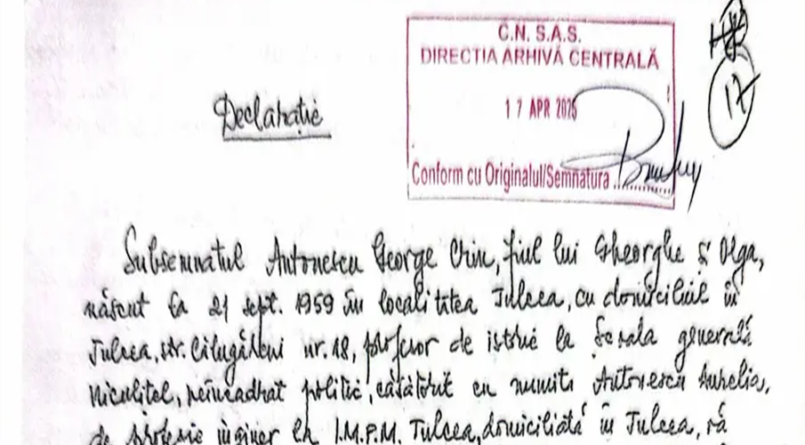 C.N. S.A.S.
DIRECTIA ARHIVĂ CENTRALĂ
17 APR 2025
Conform cu Originalul/Semnătura
17
Declarație
Subsemnatul Antonescu George Crin, fiul lui Gheorghe și Olga,
născut la 21 sept. 1959 în localitatea Tulcea, cu domiciliul în
Tulcea, str. Călugăreni nr. 18, profesor de istorie la Școala generală
Niculițel, neîncadrat politic, căsătorit cu numita Antonescu Aurelia,
de profesie inginer la I.M.P.M. Tulcea, domiciliată în Tulcea,